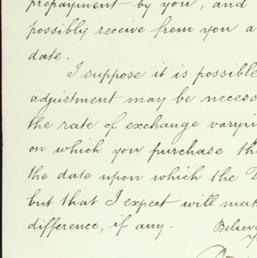 prepayment by you, and
possibly receive from you a
date.
I suppose it is possible
adjustment may be neces
the rate of exchange varyin
on which you purchase th
the date upon which the
but that I expect will ma
difference, if any.
Believ